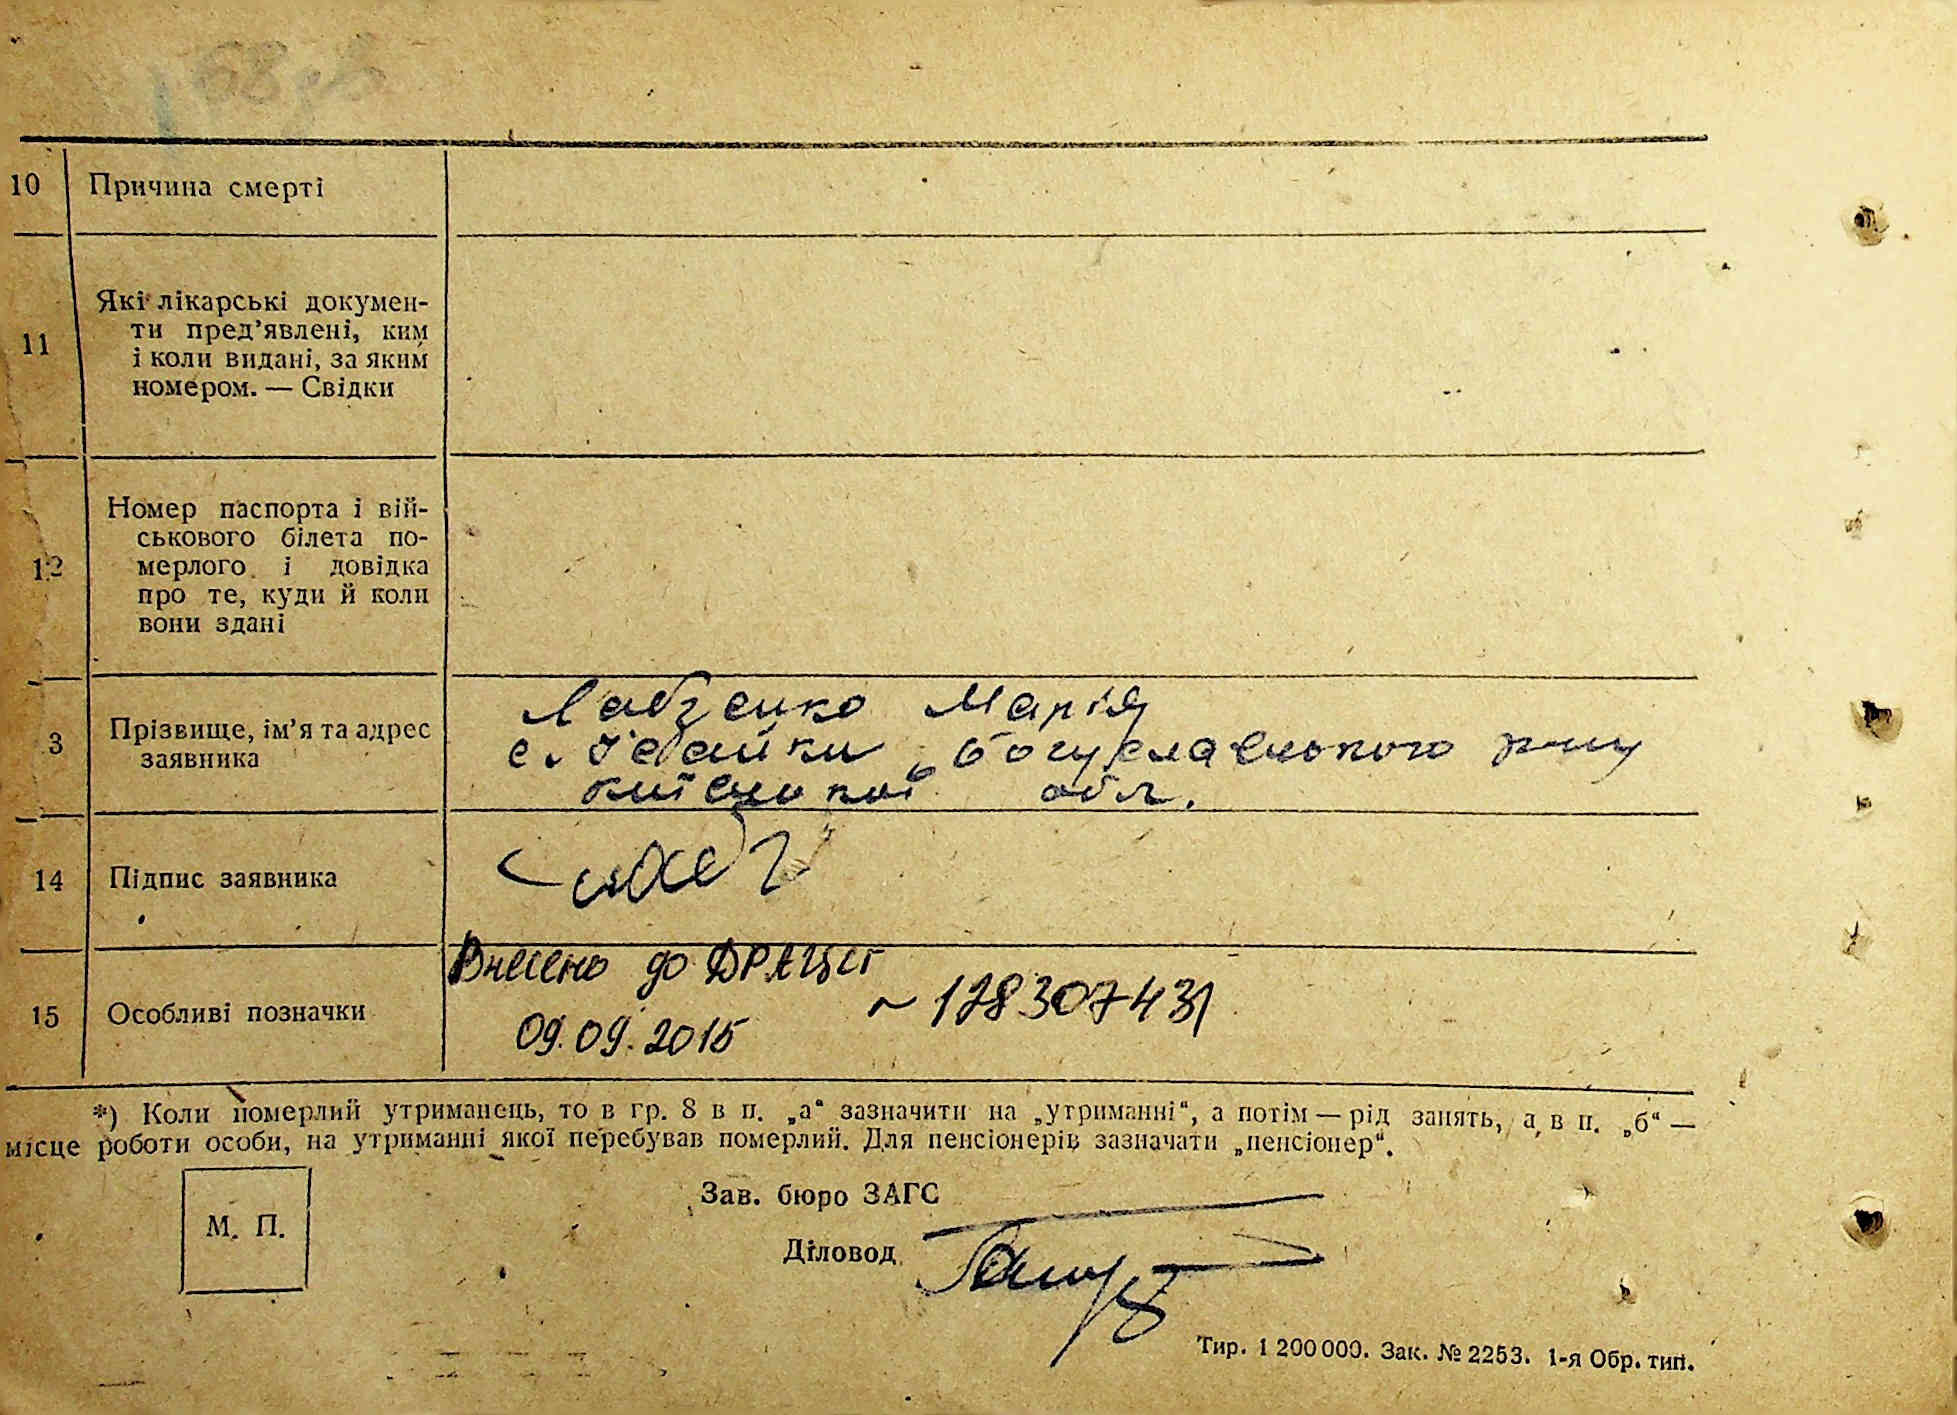 10 Причина смерті
11 Які лікарські докумен-
ти пред’явлені, ким
і коли видані, за яким
номером. — Свідки
12 Номер паспорта і вій-
ськового білета по-
мерлого і довідка
про те, куди й коли
вони здані
3 Прізвище, ім’я та адрес
заявника
Марія
с. Богуславського р-ну
Київської обл.
14 Підпис заявника
15 Особливі позначки
Внесено до ДРАЦСГ
~ 128307431
09.09.2015
*) Коли померлий утриманець, то в гр. 8 в п. „а“ зазначити на „утриманні“, а потім — рід занять, а в п. „б“ —
місце роботи особи, на утриманні якої перебував померлий. Для пенсіонерів зазначати „пенсіонер“.
М. П.
Зав. бюро ЗАГС
Діловод
Тир. 1 200 000. Зак. № 2253. 1-я Обр. тип.